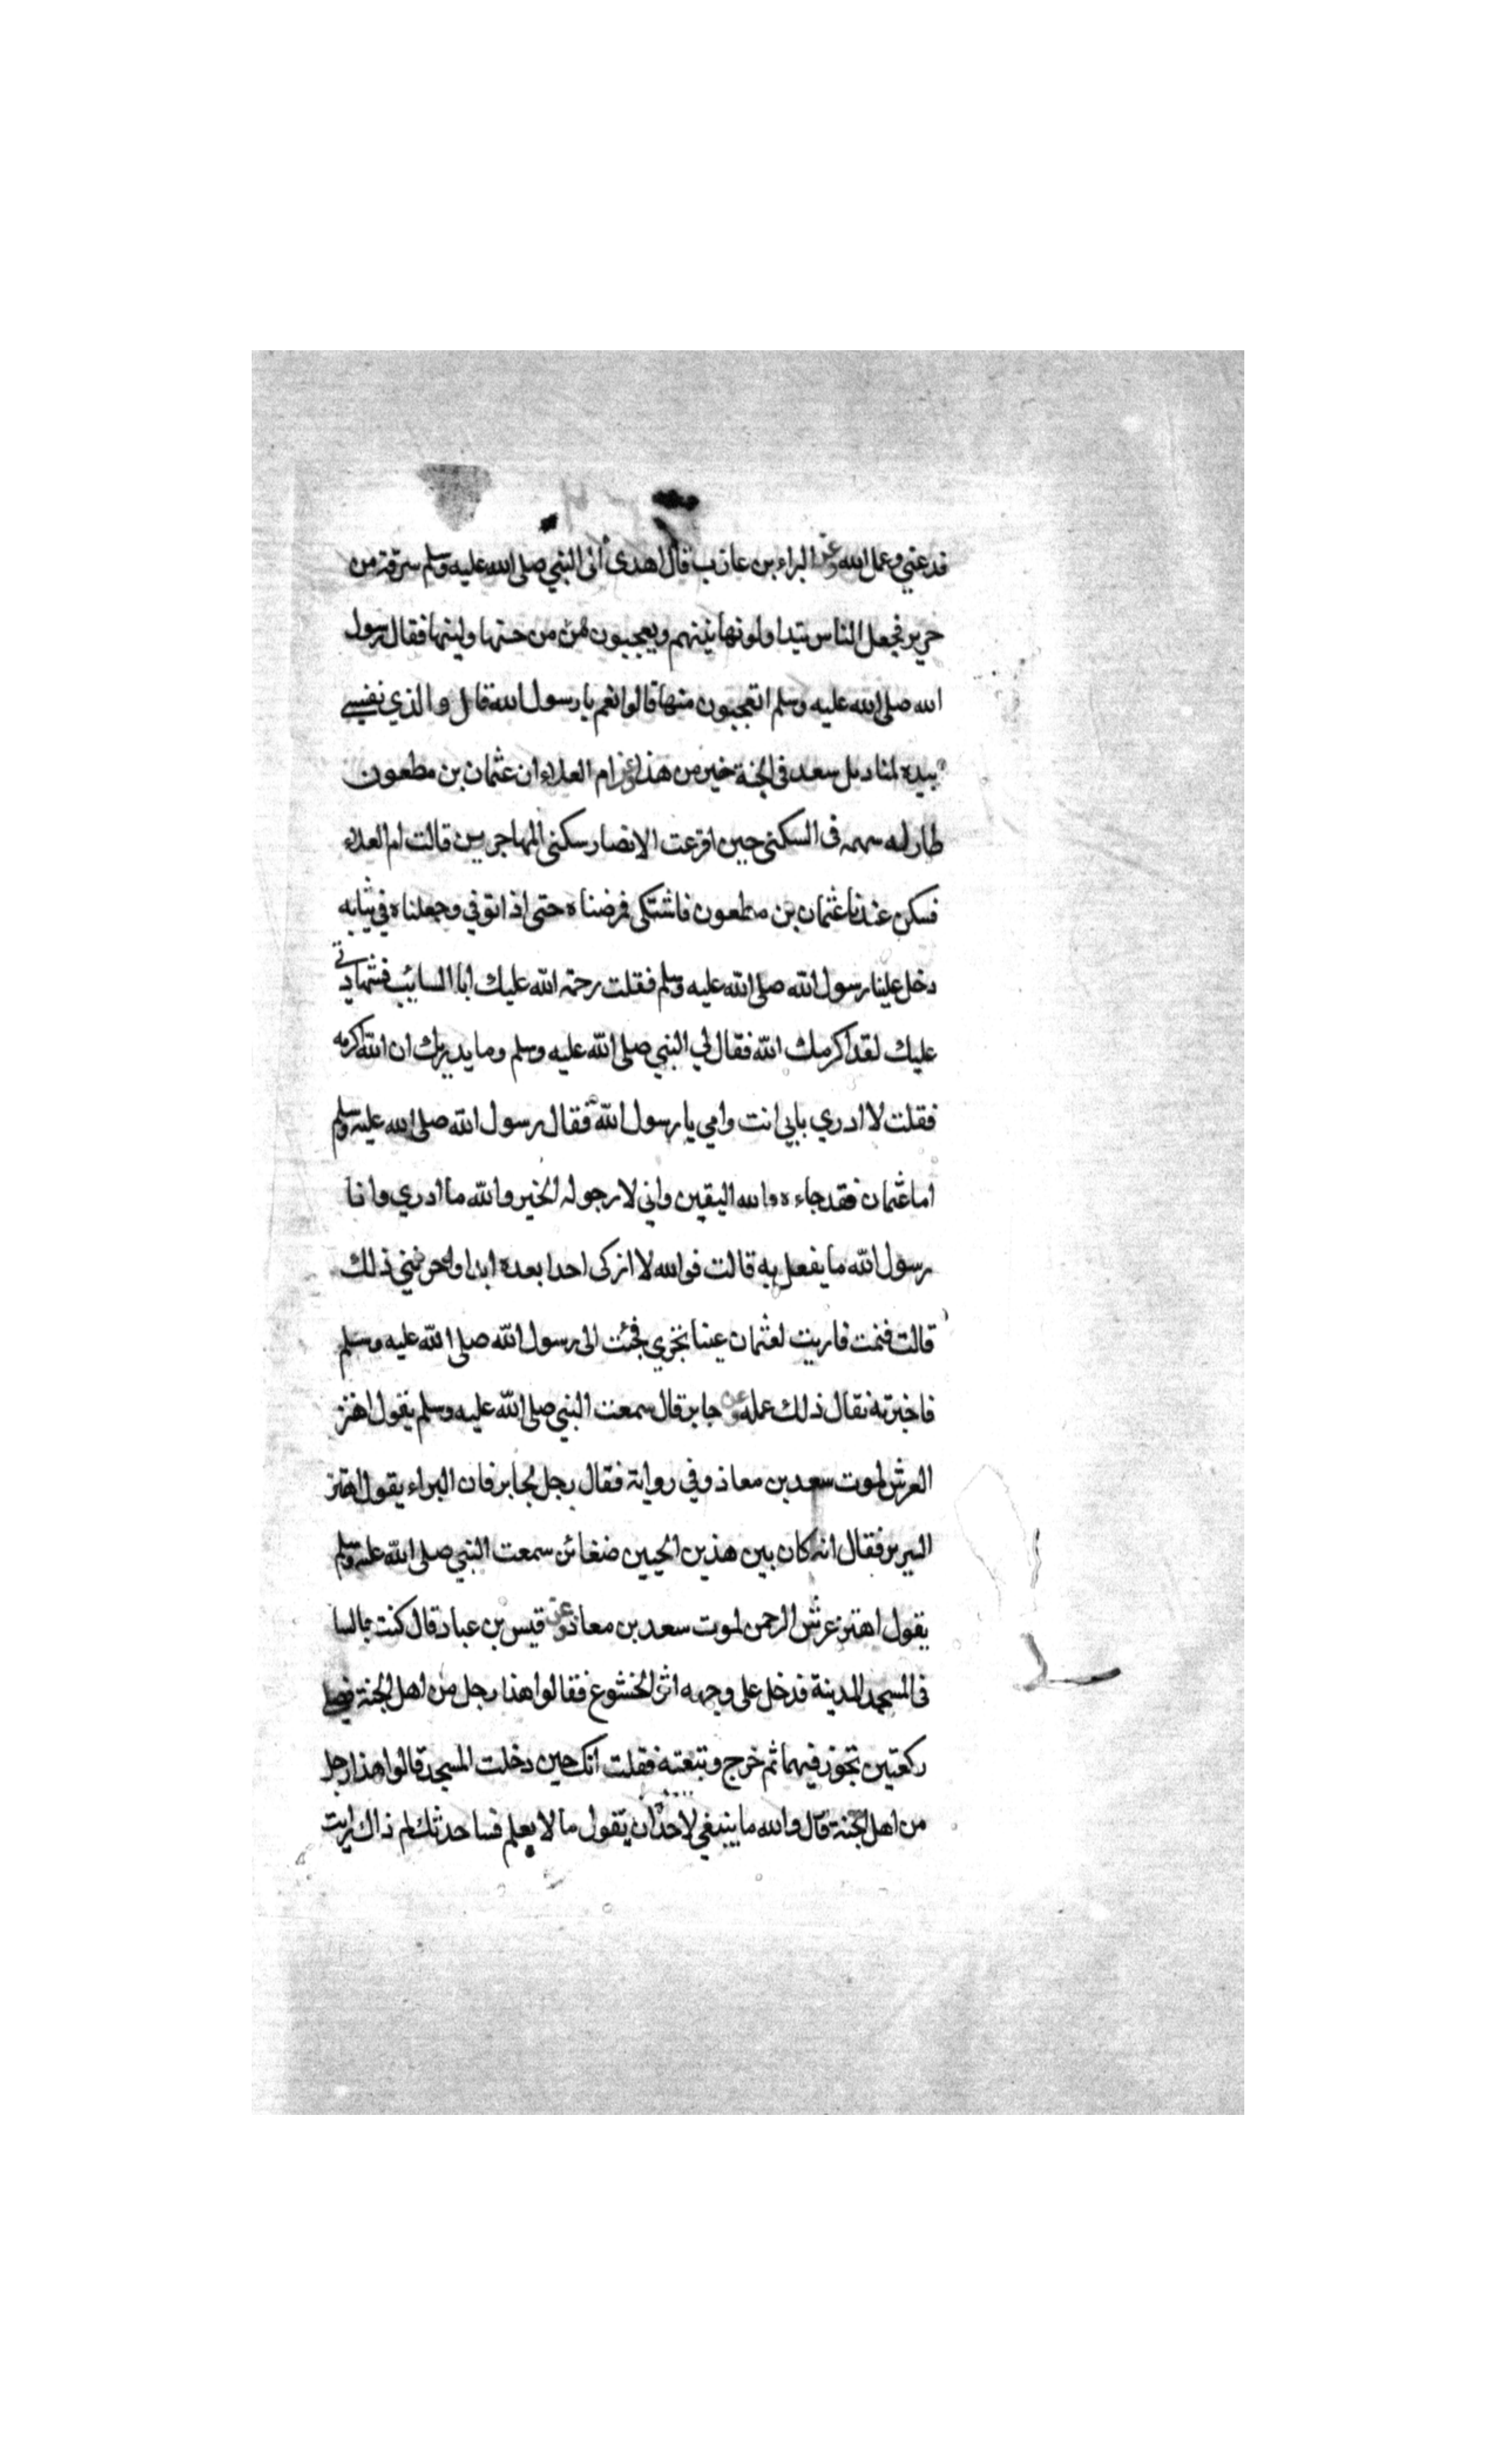 فدعني وعمل الله وعن البراء بن عازب قال اهدى الى النبي صلى الله عليه وسلم سرقة من
حرير فجعل الناس يتداولونها بينهم ويعجبون من حسنها ولينها فقال رسول
الله صلى الله عليه وسلم اتعجبون منها قالوا نعم يا رسول الله قال والذي نفسي
بيده لمناديل سعد في الجنة خير من هذا وعن ام العلاء ان عثمان بن مطعون
طار له سهمه في السكنى حين اقرعت الانصار سكنى المهاجرين قالت ام العلاء
فسكن عندنا عثمان بن مطعون فاشتكى فمرضناه حتى اذا توفي وجعلناه في ثيابه
دخل علينا رسول الله صلى الله عليه وسلم فقلت رحمة الله عليك ابا السائب فشهادتي
عليك لقد اكرمك الله فقال لي النبي صلى الله عليه وسلم وما يدريك ان الله اكرمه
فقلت لا ادري بابي انت وامي يا رسول الله فقال رسول الله صلى الله عليه وسلم
اما عثمان فقد جاءه والله اليقين واني لارجو له الخير والله ما ادري وانا
رسول الله ما يفعل به قالت فوالله لا ازكى احدا بعده ابدا واحزنني ذلك
قالت فنمت فاريت لعثمان عينا تجري فجئت الى رسول الله صلى الله عليه وسلم
فاخبرته فقال ذلك عمله وعن جابر قال سمعت النبي صلى الله عليه وسلم يقول اهتز
العرش لموت سعد بن معاذ وفي رواية فقال رجل لجابر فان البراء يقول اهتز
السرير فقال انه كان بين هذين الحيين ضغائن سمعت النبي صلى الله عليه وسلم
يقول اهتز عرش الرحمن لموت سعد بن معاذ وعن قيس بن عباد قال كنت جالسا
في المسجد المدينة فدخل على وجهه اثر الخشوع فقالوا هذا رجل من اهل الجنة فصلى
ركعتين تجوز فيهما ثم خرج وتبعته فقلت انك حين دخلت المسجد قالوا هذا رجل
من اهل الجنة قال والله ما ينبغي لاحد ان يقول ما لا يعلم فساحدثك لم ذاك رايت